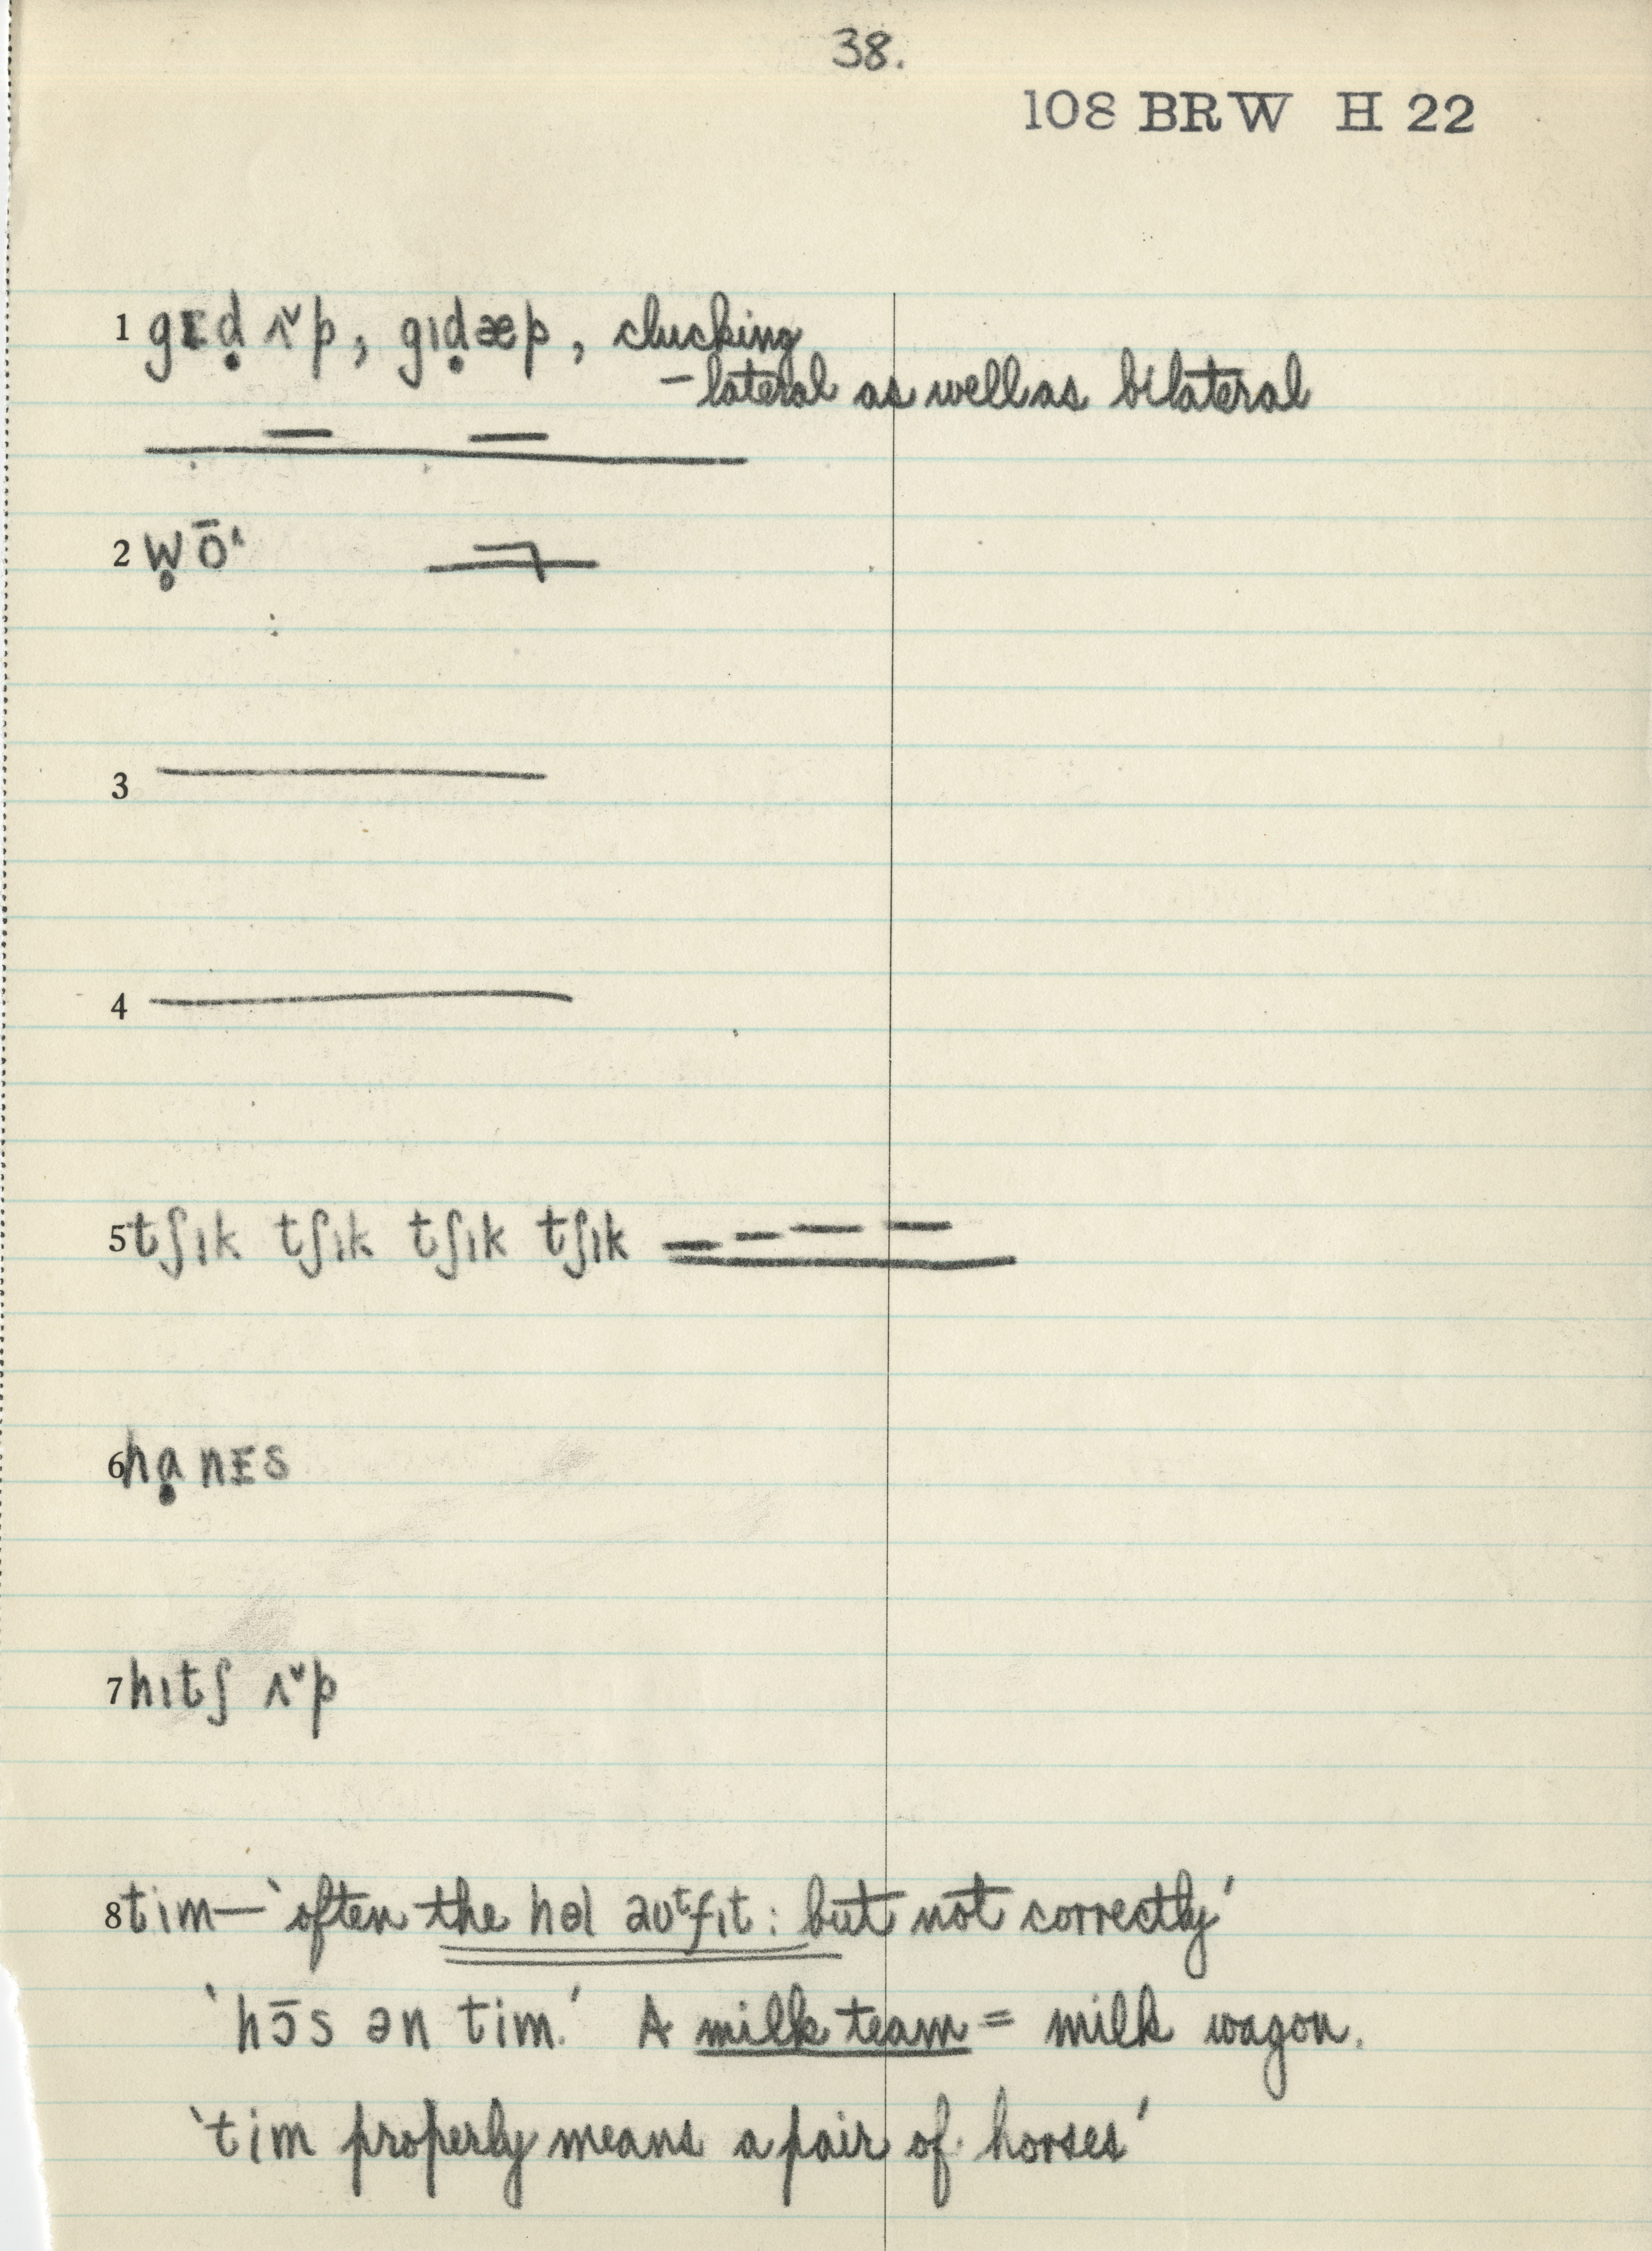 38.
108 BRW H 22
1 gɪḍ ʌ˅p, gɪḍæp, clucking
– lateral as well as bilateral
2 w̥ō^
3
4
5 tʃɪk tʃɪk tʃɪk tʃɪk
6 hạnɪs
7 hɪtʃ ʌ˅p
8 tim — 'often the həl aʊᵗfɪt : but not correctly'
'hɔ̄s ən tim.' A milk team = milk wagon.
'tim properly means a pair of horses'